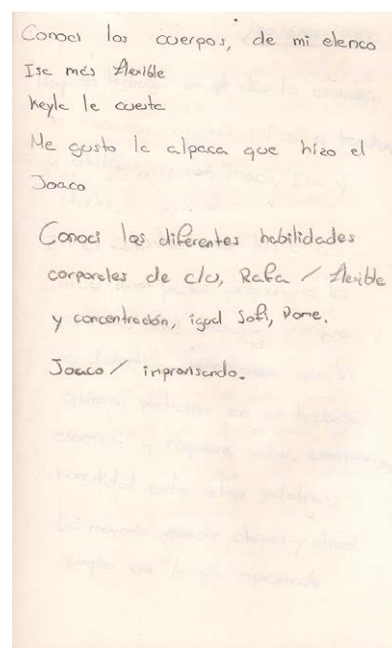 Conoci los cuerpos, de mi elenco
Isa más flexible
Keyla le cuesta
Me gusto la alpaca que hizo el
Joaco
Conoci las diferentes habilidades
corporales de c/u, Rafa / flexible
y concentración, igual Sofi, Dome.
Joaco / improvisando.